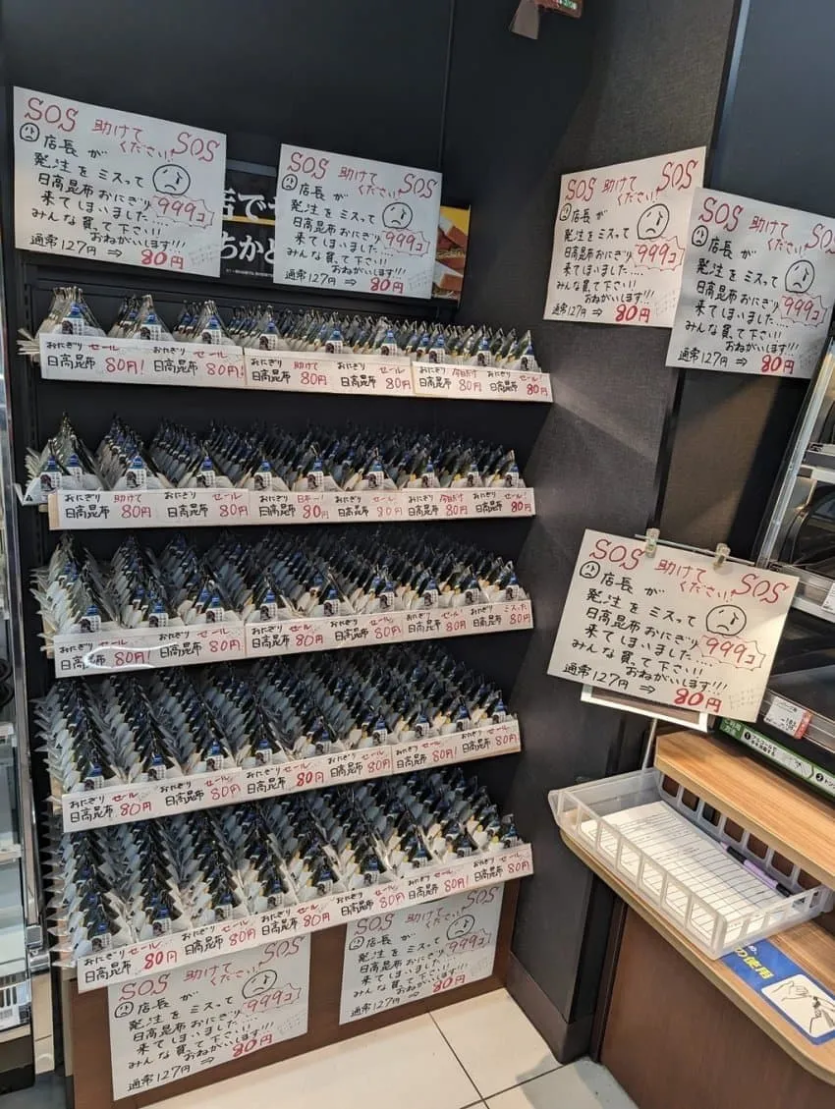 SOS 助けてください! SOS
店長が
発注をミスって
日高昆布おにぎり 999コ
来てしまいました....
みんな買って下さい!!
おねがいします!!!
通常127円 ⇒ 80円
SOS 助けてください! SOS
店長が
発注をミスって
日高昆布おにぎり 999コ
来てしまいました....
みんな買って下さい!!
おねがいします!!!
通常127円 ⇒ 80円
SOS 助けてください! SOS
店長が
発注をミスって
日高昆布おにぎり 999コ
来てしまいました....
みんな買って下さい!!
おねがいします!!!
通常127円 ⇒ 80円
SOS 助けてください! SOS
店長が
発注をミスって
日高昆布おにぎり 999コ
来てしまいました....
みんな買って下さい!!
おねがいします!!!
通常127円 ⇒ 80円
店で
ちかと
おにぎり セール おにぎり セール おにぎり 助けて おにぎり セール おにぎり 今日だけ おにぎり セール
日高昆布 80円! 日高昆布 80円! 日高昆布 80円 日高昆布 80円 日高昆布 80円 日高昆布 80円
おにぎり 助けて おにぎり セール おにぎり 日本一! おにぎり セール おにぎり 今日だけ おにぎり セール!
日高昆布 80円 日高昆布 80円 日高昆布 80円 日高昆布 80円 日高昆布 80円 日高昆布 80円
おにぎり セール おにぎり セール おにぎり セール おにぎり セール おにぎり セール おにぎり ミスった
日高昆布 80円! 日高昆布 80円 日高昆布 80円 日高昆布 80円 日高昆布 80円 日高昆布 80円
おにぎり セール おにぎり セール おにぎり セール おにぎり セール おにぎり セール おにぎり セール
日高昆布 80円 日高昆布 80円 日高昆布 80円 日高昆布 80円 日高昆布 80円! 日高昆布 80円
おにぎり セール おにぎり セール おにぎり セール おにぎり セール おにぎり セール おにぎり セール
日高昆布 80円 日高昆布 80円 日高昆布 80円 日高昆布 80円 日高昆布 80円! 日高昆布 80円
SOS 助けてください! SOS
店長が
発注をミスって
日高昆布おにぎり 999コ
来てしまいました....
みんな買って下さい!!
おねがいします!!!
通常127円 ⇒ 80円
SOS 助けてください! SOS
店長が
発注をミスって
日高昆布おにぎり 999コ
来てしまいました....
みんな買って下さい!!
おねがいします!!!
通常127円 ⇒ 80円
SOS 助けてください! SOS
店長が
発注をミスって
日高昆布おにぎり 999コ
来てしまいました....
みんな買って下さい!!
おねがいします!!!
通常127円 ⇒ 80円
の使用